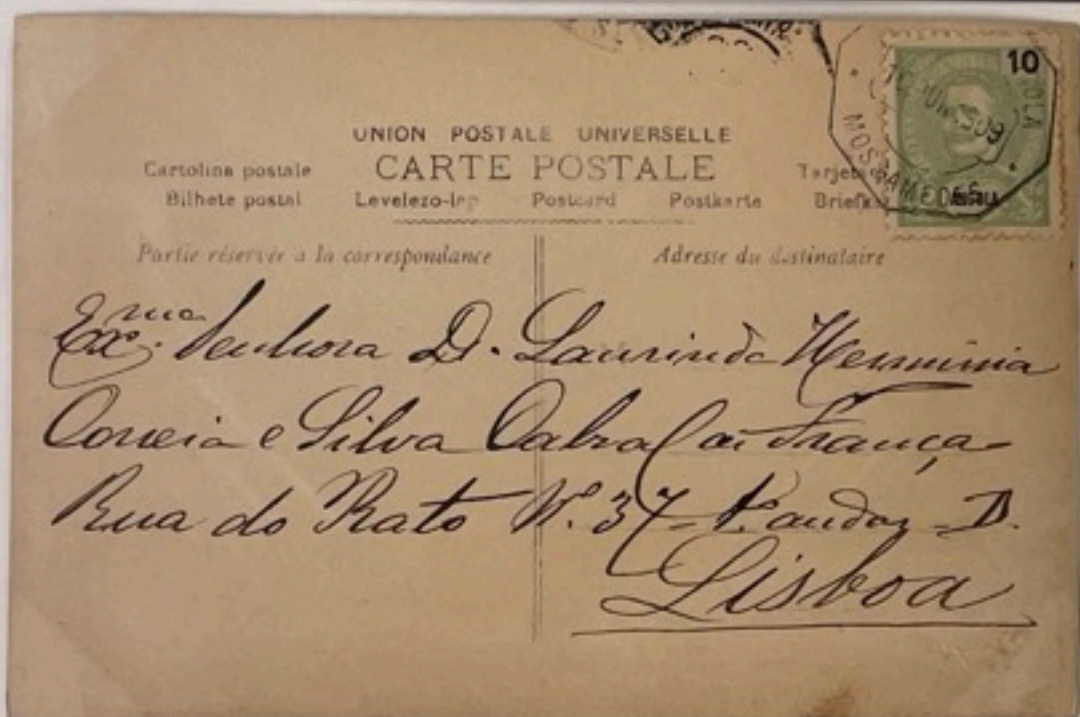 UNION POSTALE UNIVERSELLE
CARTE POSTALE
Cartolina postale
Bilhete postal Levelezo-lap Postcard Postkarte
Partie réservée a la correspondance
Adresse du destinataire
10
ANGOLA
MOSSAMEDES
1909
Exma. Senhora D. Laurinda Herminia
Correia e Silva Cabral da França
Rua do Rato Nº. 37- 1º andar D.
Lisboa